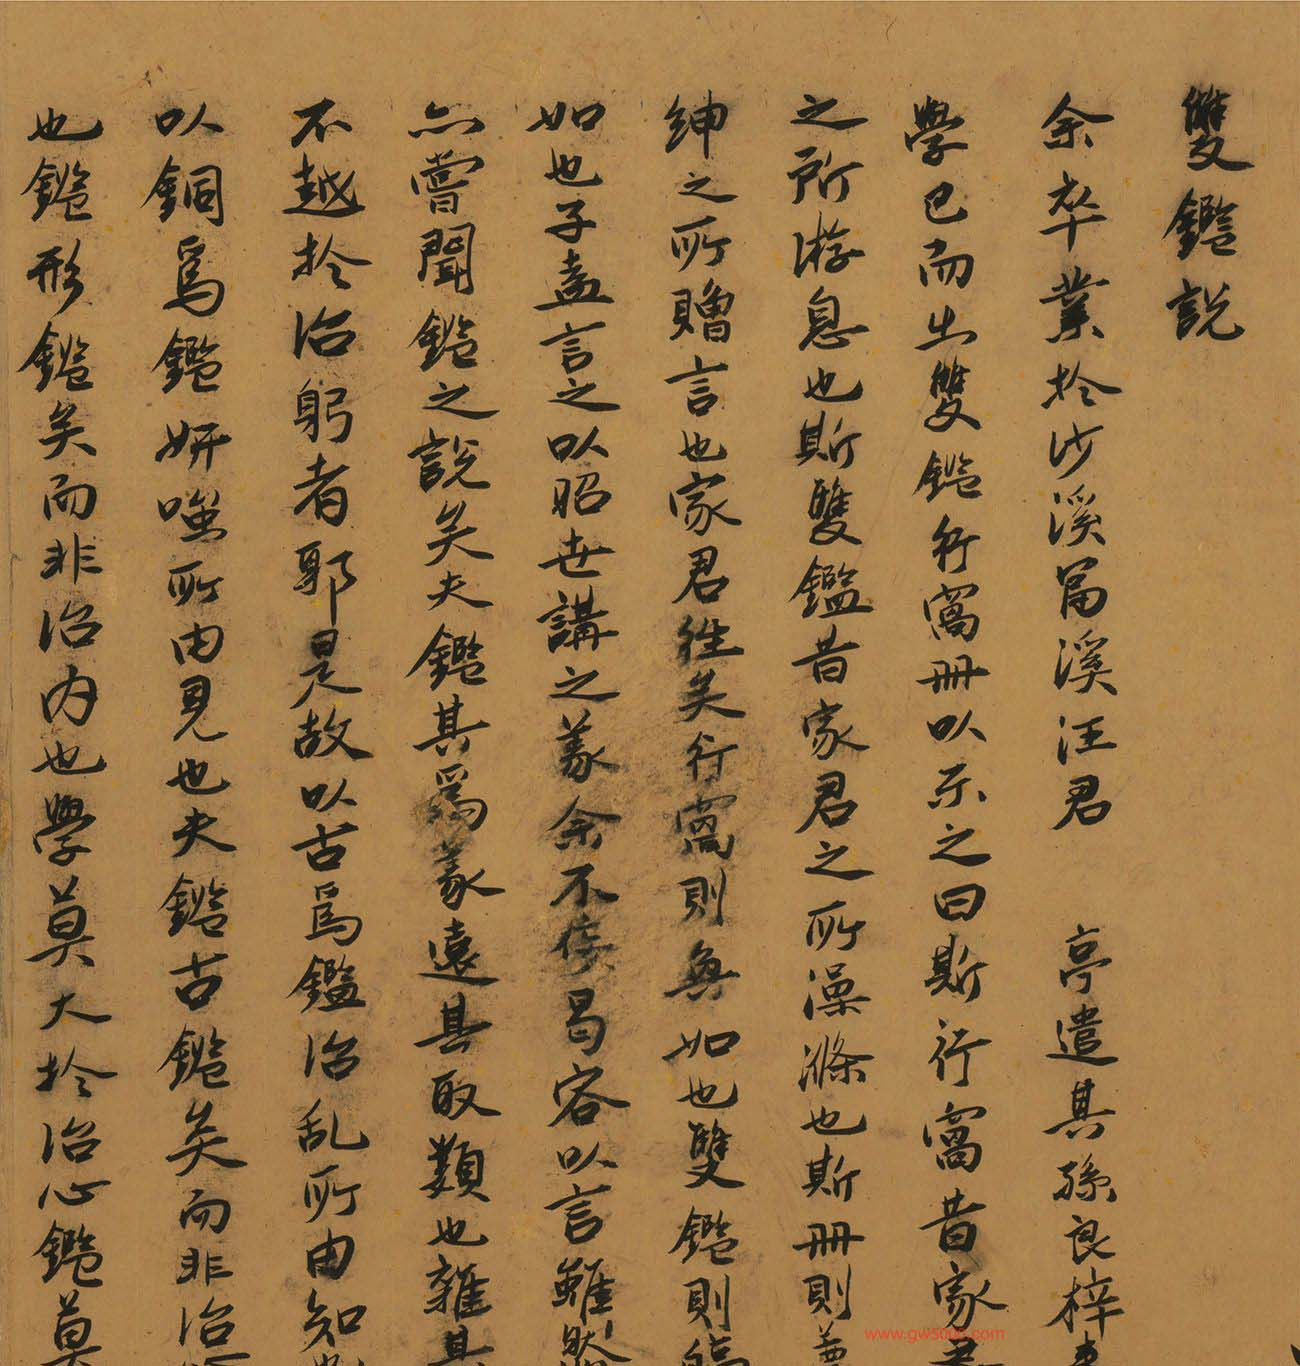 雙鑑說
余卒業於沙溪富溪汪君 亭遣其孫良梓
學已而出雙鑑行窩冊以示之曰斯行窩昔家
之所游息也斯雙鑑昔家君之所澡滌也斯冊則
紳之所贈言也家君徃矣行窩則無如也雙鑑則
如也子盍言之以昭世講之義余不佞曷容以言雖然
亦嘗聞鑑之說矣夫鑑其爲義遠其取類也雜其
不越於治躬者耶是故以古爲鑑治乱所由知
以銅爲鑑妍媸所由見也夫鑑古鑑矣而非治
也鑑形鑑矣而非治内也學莫大於治心鑑莫
www.gw5000.com